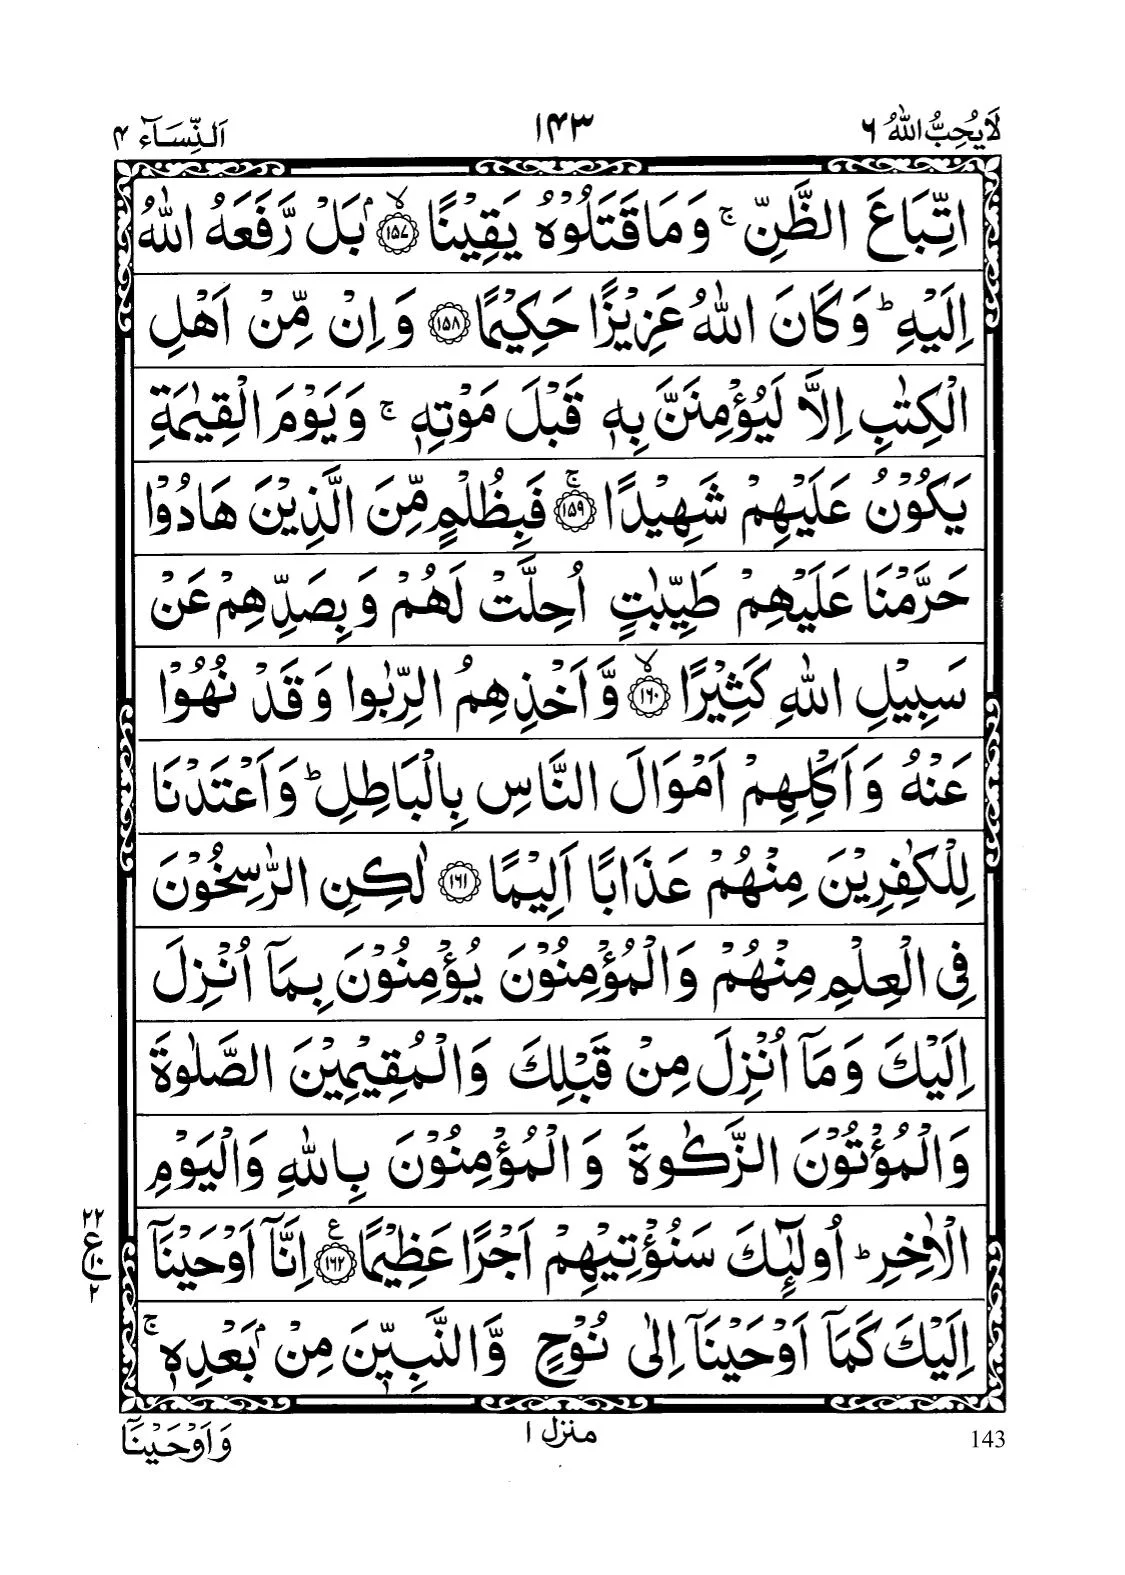 اَلنِّسَآء ۴ ۱۴۳ لَا يُحِبُّ اللّٰهُ ۶
اتِّبَاعَ الظَّنِّ ۚ وَمَا قَتَلُوْهُ يَقِيْنًا ۙ﴿۱۵۷﴾ بَلْ رَّفَعَهُ اللّٰهُ
اِلَيْهِ ؕ وَكَانَ اللّٰهُ عَزِيْزًا حَكِيْمًا ﴿۱۵۸﴾ وَاِنْ مِّنْ اَهْلِ
الْكِتٰبِ اِلَّا لَيُؤْمِنَنَّ بِهٖ قَبْلَ مَوْتِهٖ ۚ وَيَوْمَ الْقِيٰمَةِ
يَكُوْنُ عَلَيْهِمْ شَهِيْدًا ۚ﴿۱۵۹﴾ فَبِظُلْمٍ مِّنَ الَّذِيْنَ هَادُوْا
حَرَّمْنَا عَلَيْهِمْ طَيِّبٰتٍ اُحِلَّتْ لَهُمْ وَبِصَدِّهِمْ عَنْ
سَبِيْلِ اللّٰهِ كَثِيْرًا ۙ﴿۱۶۰﴾ وَّاَخْذِهِمُ الرِّبٰوا وَقَدْ نُهُوْا
عَنْهُ وَاَكْلِهِمْ اَمْوَالَ النَّاسِ بِالْبَاطِلِ ؕ وَاَعْتَدْنَا
لِلْكٰفِرِيْنَ مِنْهُمْ عَذَابًا اَلِيْمًا ﴿۱۶۱﴾ لٰكِنِ الرّٰسِخُوْنَ
فِى الْعِلْمِ مِنْهُمْ وَالْمُؤْمِنُوْنَ يُؤْمِنُوْنَ بِمَآ اُنْزِلَ
اِلَيْكَ وَمَآ اُنْزِلَ مِنْ قَبْلِكَ وَالْمُقِيْمِيْنَ الصَّلٰوةَ
وَالْمُؤْتُوْنَ الزَّكٰوةَ وَالْمُؤْمِنُوْنَ بِاللّٰهِ وَالْيَوْمِ
الْاٰخِرِ ؕ اُولٰٓئِكَ سَنُؤْتِيْهِمْ اَجْرًا عَظِيْمًا ۧ﴿۱۶۲﴾ اِنَّآ اَوْحَيْنَآ
۲۲
ع ۱۰
۲
اِلَيْكَ كَمَآ اَوْحَيْنَآ اِلٰى نُوْحٍ وَّالنَّبِيّٖنَ مِنْۢ بَعْدِهٖ ۚ
وَاَوْحَيْنَآ منزل ۱ 143